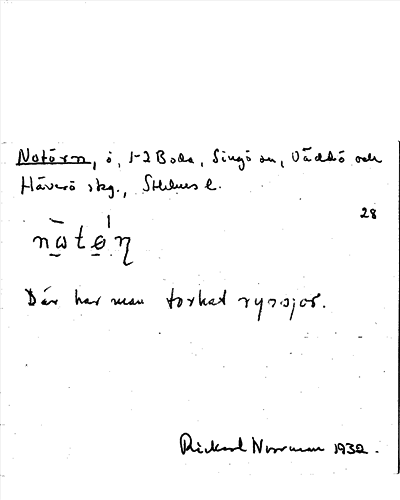 Notörn, ö, 1-2 Boda, Singö sn, Väddö och
Häverö skg., Sthlms l.
28
Där har man torkat ryssjor.
Rickard Norrman 1932.